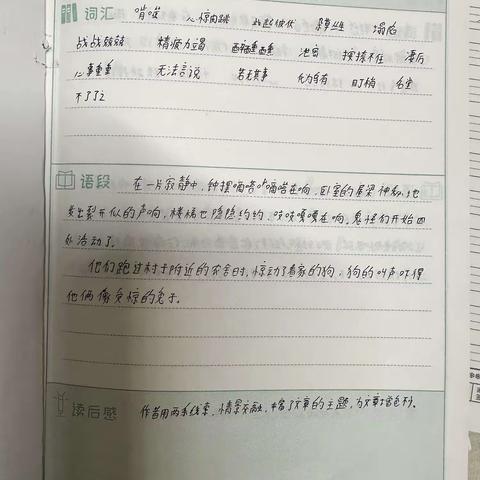 词汇 啃噬 心惊肉跳 此起彼伏
战战兢兢 精疲力竭 按捺不住
心事重重 无法言说 若无其事 化为乌有
不了了之
语段 在一片寂静中,钟摆嘀嗒嘀嗒在响,卧室的房梁神秘地
发出裂开似的声响,楼梯也隐隐约约、吱吱嘎嘎在响,鬼怪们开始四
处活动了。
他们跑过村子附近的农舍时,惊动了看家的狗,狗的叫声吓得
他俩像受惊的兔子。
读后感 作者用两条线索,情景交融,丰富了文章的主题,为文章增色不少。